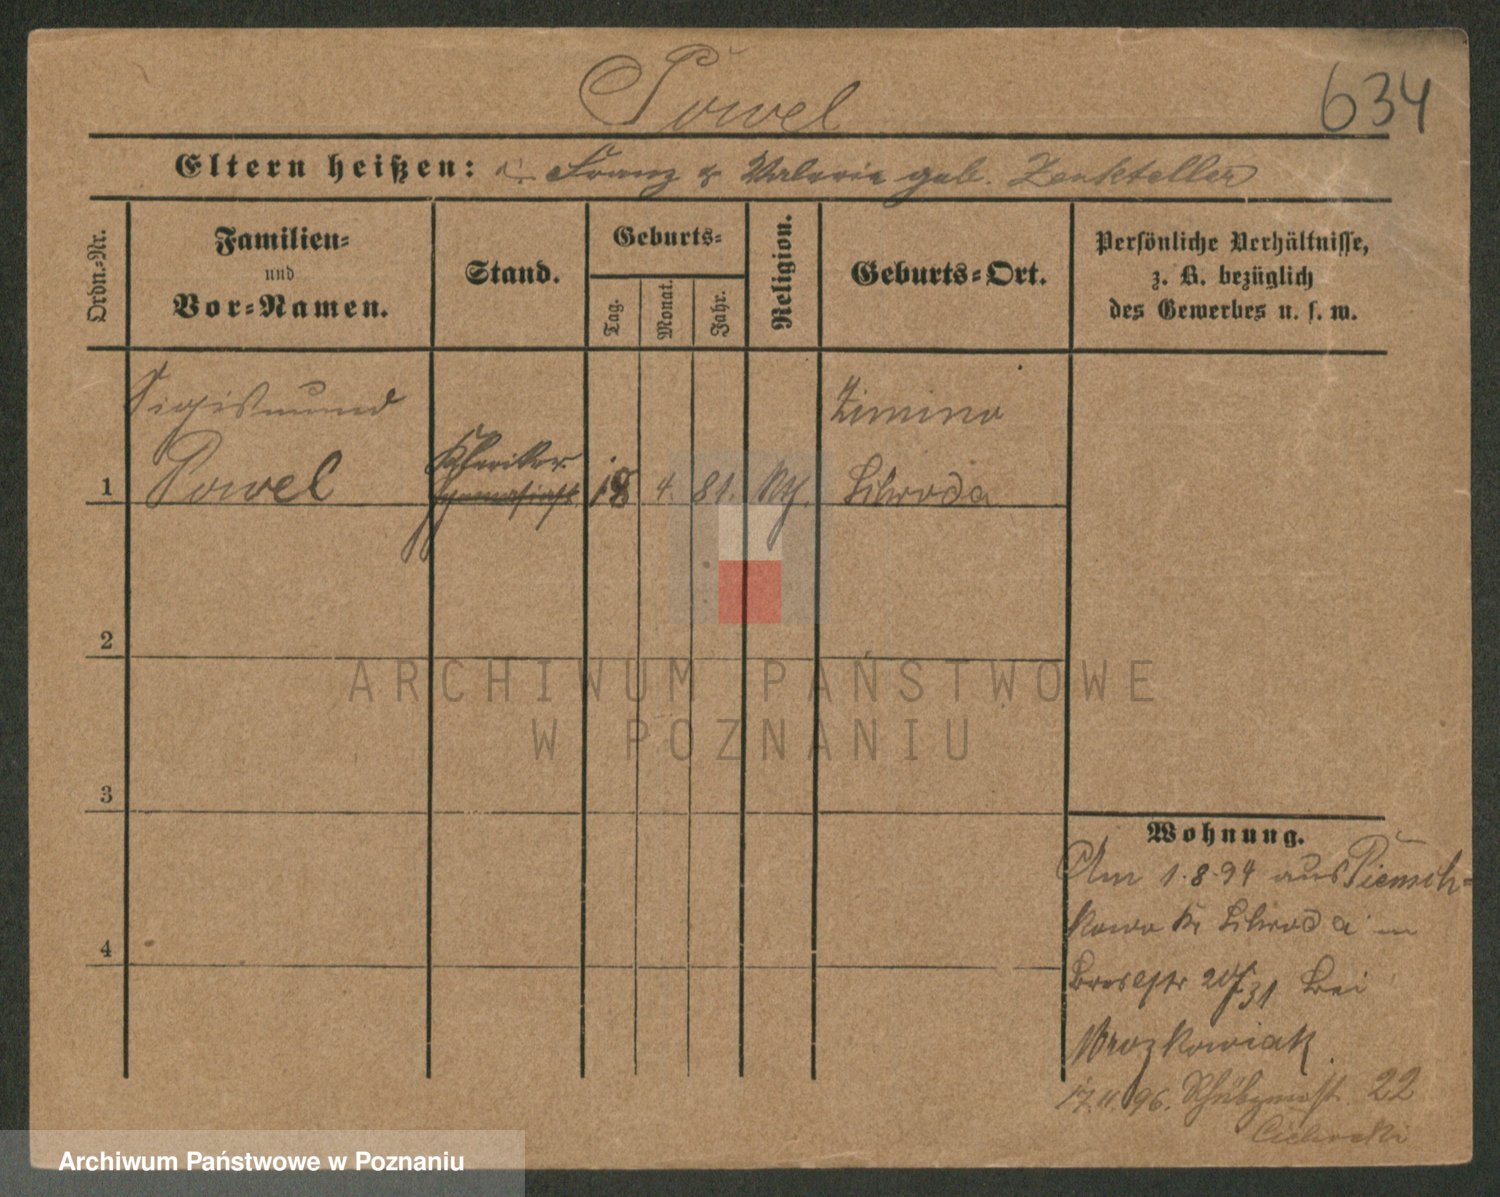 Powel
634
Eltern heißen: Franz & Valerie geb. Zenkteller
Ordn.-Nr.
Familien-
und
Vor-Namen.
Stand.
Geburts-
Tag.
Monat.
Jahr.
Religion.
Geburts-Ort.
Persönliche Verhältnisse,
z. B. bezüglich
des Gewerbes u. s. w.
Sigismund
Powel
Kleriker
Gymnasiast
1
18
4.
81.
Kth.
Zimino
Schroda
2
3
4
Wohnung.
Am 1.8.94 aus
Kr. Schroda
Breslstr 20/31 bei
Mrozkowiak
17.11.96. 22
Cichocki
ARCHIWUM PAŃSTWOWE
W POZNANIU
Archiwum Państwowe w Poznaniu